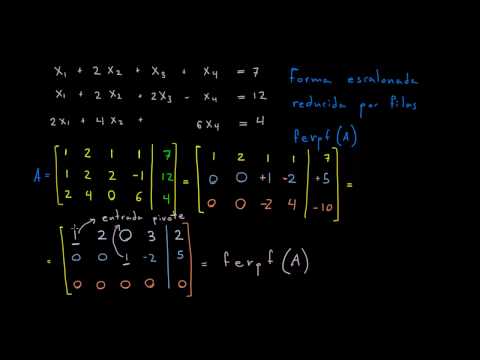 x₁ + 2x₂ + x₃ + x₄ = 7
x₁ + 2x₂ + 2x₃ - x₄ = 12
2x₁ + 4x₂ + 6x₄ = 4
Forma escalonada
reducida por filas
ferpf(A)
A = [1 2 1 1 | 7] = [1 2 1 1 | 7]
[1 2 2 -1 | 12] [0 0 +1 -2 | +5] =
[2 4 0 6 | 4] [0 0 -2 4 | -10]
entrada pivote
[1 2 0 3 | 2]
= [0 0 1 -2 | 5] = ferpf(A)
[0 0 0 0 | 0]